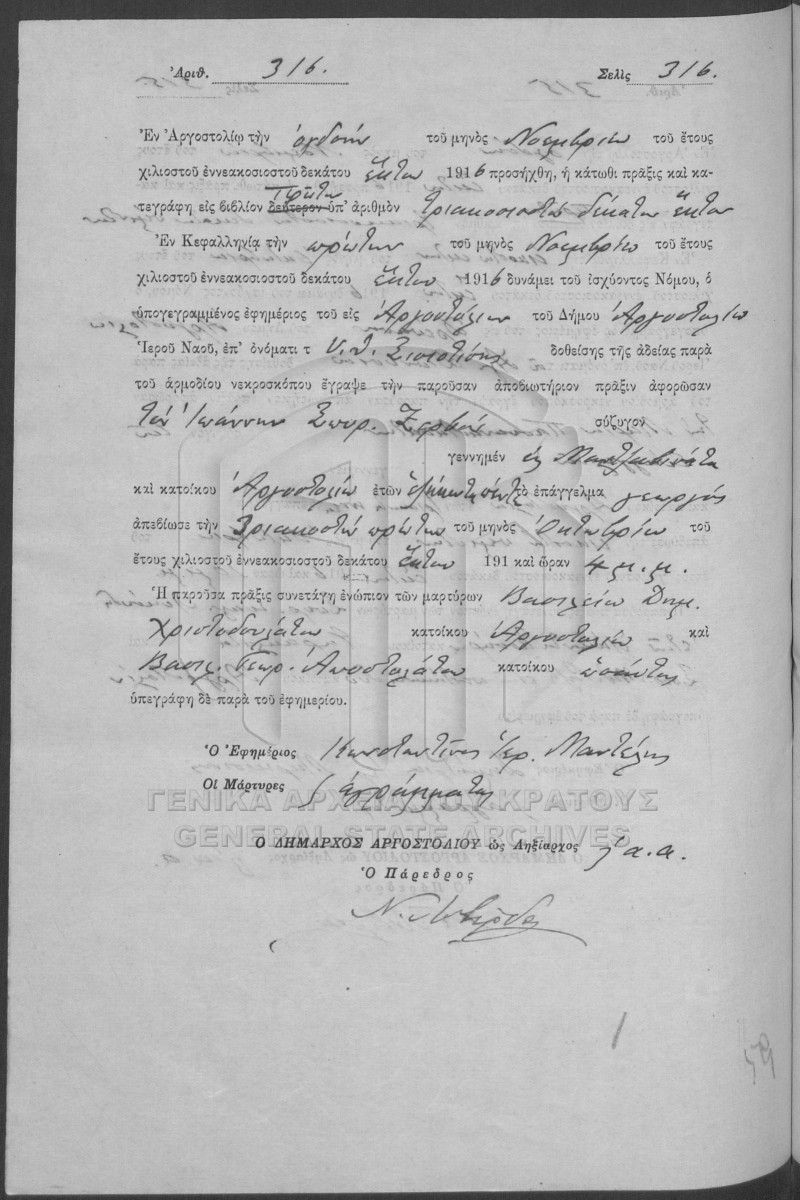 Ἀριθ. 316. Σελὶς 316.
Ἐν Ἀργοστολίῳ τὴν ὀγδόην τοῦ μηνὸς Νοεμβρίου τοῦ ἔτους
χιλιοστοῦ ἐννεακοσιοστοῦ δεκάτου ἕκτου 1916 προσήχθη, ἡ κάτωθι πρᾶξις καὶ κα-
Πρῶτον
τεγράφη εἰς βιβλίον δεύτερον ὑπ' ἀριθμὸν τριακοσιοστὸν δέκατον ἕκτον
Ἐν Κεφαλληνίᾳ τὴν πρώτην τοῦ μηνὸς Νοεμβρίου τοῦ ἔτους
χιλιοστοῦ ἐννεακοσιοστοῦ δεκάτου ἕκτου 1916 δυνάμει τοῦ ἰσχύοντος Νόμου, ὁ
ὑπογεγραμμένος ἐφημέριος τοῦ εἰς Ἀργοστόλιον τοῦ Δήμου Ἀργοστολίου
Ἱεροῦ Ναοῦ, ἐπ' ὀνόματι τ Υ. Θ. Σισσιώτισσης δοθείσης τῆς ἀδείας παρὰ
τοῦ ἁρμοδίου νεκροσκόπου ἔγραψε τὴν παροῦσαν ἀποβιωτήριον πρᾶξιν ἀφορῶσαν
τὸν Ἰωάννην Σπυρ. Ζερβὸν σύζυγον
γεννημέν εἰς Μαντζαβινάτα
καὶ κατοίκου Ἀργοστολίου ἐτῶν ἑξήκοντα πέντε τὸ ἐπάγγελμα γεωργός
ἀπεβίωσε τὴν Τριακοστὴν πρώτην τοῦ μηνὸς Ὀκτωβρίου τοῦ
ἔτους χιλιοστοῦ ἐννεακοσιοστοῦ δεκάτου ἕκτου 191 καὶ ὥραν 4 μ.μ.
Ἡ παροῦσα πρᾶξις συνετάγη ἐνώπιον τῶν μαρτύρων Βασιλείου Δημ.
Χριστοδουλάτου κατοίκου Ἀργοστολίου καὶ
Βασιλ. Γεωρ. Ἀποστολάτου κατοίκου ὡσαύτως
ὑπεγράφη δὲ παρὰ τοῦ ἐφημερίου.
Ὁ Ἐφημέριος Κωνσταντῖνος Ἱερ. Μαντέλης
Οἱ Μάρτυρες ἀγράμματοι
ΓΕΝΙΚΑ ΑΡΧΕΙΑ ΤΟΥ ΚΡΑΤΟΥΣ
GENERAL STATE ARCHIVES
Ο ΔΗΜΑΡΧΟΣ ΑΡΓΟΣΤΟΛΙΟΥ ὡς Ληξίαρχος α.α.
Ὁ Πάρεδρος